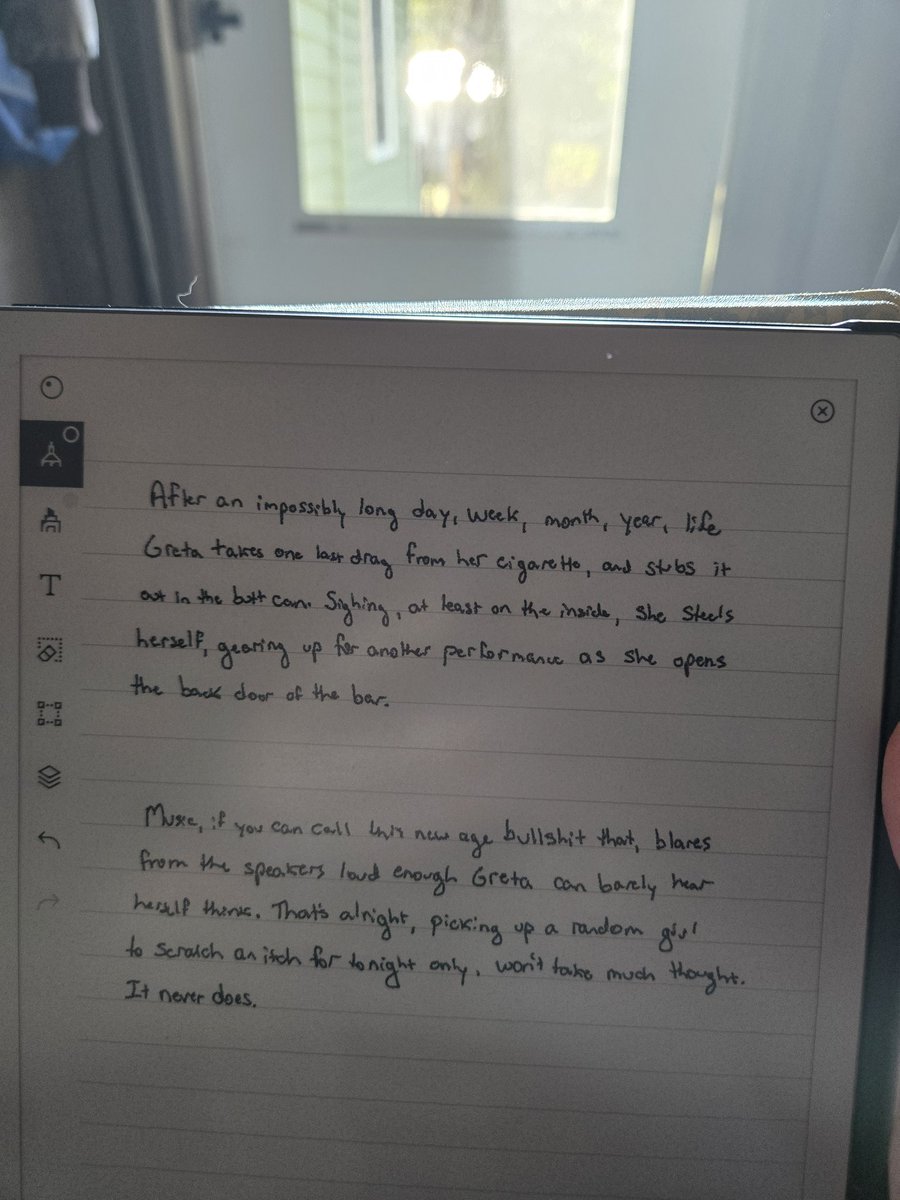 T
After an impossibly long day, week, month, year, life
Greta takes one last drag from her cigarette, and stubs it
out in the butt can. Sighing, at least on the inside, she steels
herself, gearing up for another performance as she opens
the back door of the bar.
Music, if you can call this new age bullshit that, blares
from the speakers loud enough Greta can barely hear
herself think. That's alright, picking up a random girl
to scratch an itch for tonight only, won't take much thought.
It never does.